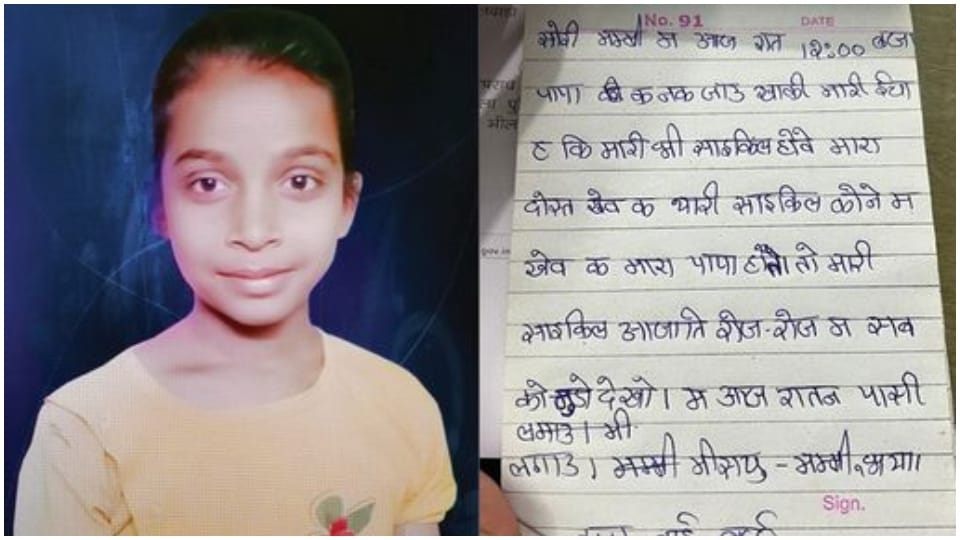 No. 91 DATE
सोरी मम्मी म आज रात 12:00 बज
पापा की क नक जाउ साकी मारी ईचा
ह कि मारी भी साइकिल होवे मारा
दोस्त खेव क थारी साइकिल कोने म
खेव क मारा पापा होता तो मारी
साइकिल आजाति रोज-रोज म सब
को मुडो देखो। म आज रातन पासी
लगाउ। मी
लगाउ। मम्मी मीसयु - मम्मी, भया।
Sign.